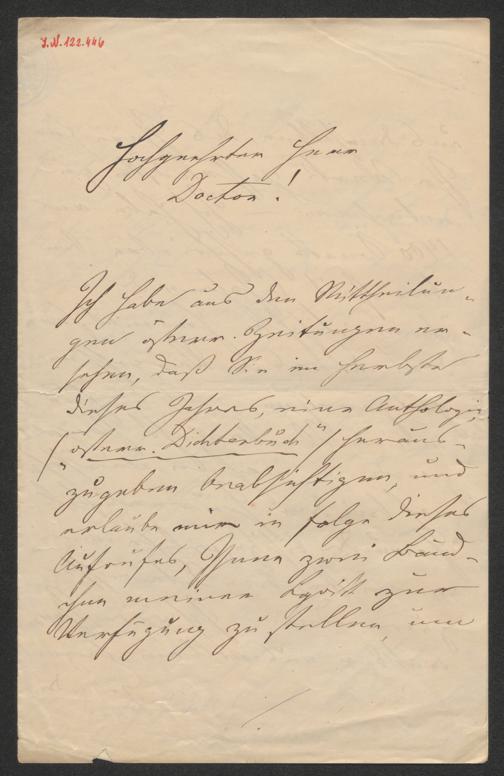 J.N. 122.446
Hochgeehrter Herr
Doctor!
Ich habe aus den Mittheilun-
gen österr. Zeitungen er-
sehen, daß Sie im Herbste
dieses Jahres, eine Anthologie
("österr. Dichterbuch") heraus-
zugeben beabsichtigen, und
erlaube mir in folge dieses
Aufrufes, Ihnen zwei Bänd-
chen meiner Lyrik zur
Verfügung zu stellen, um